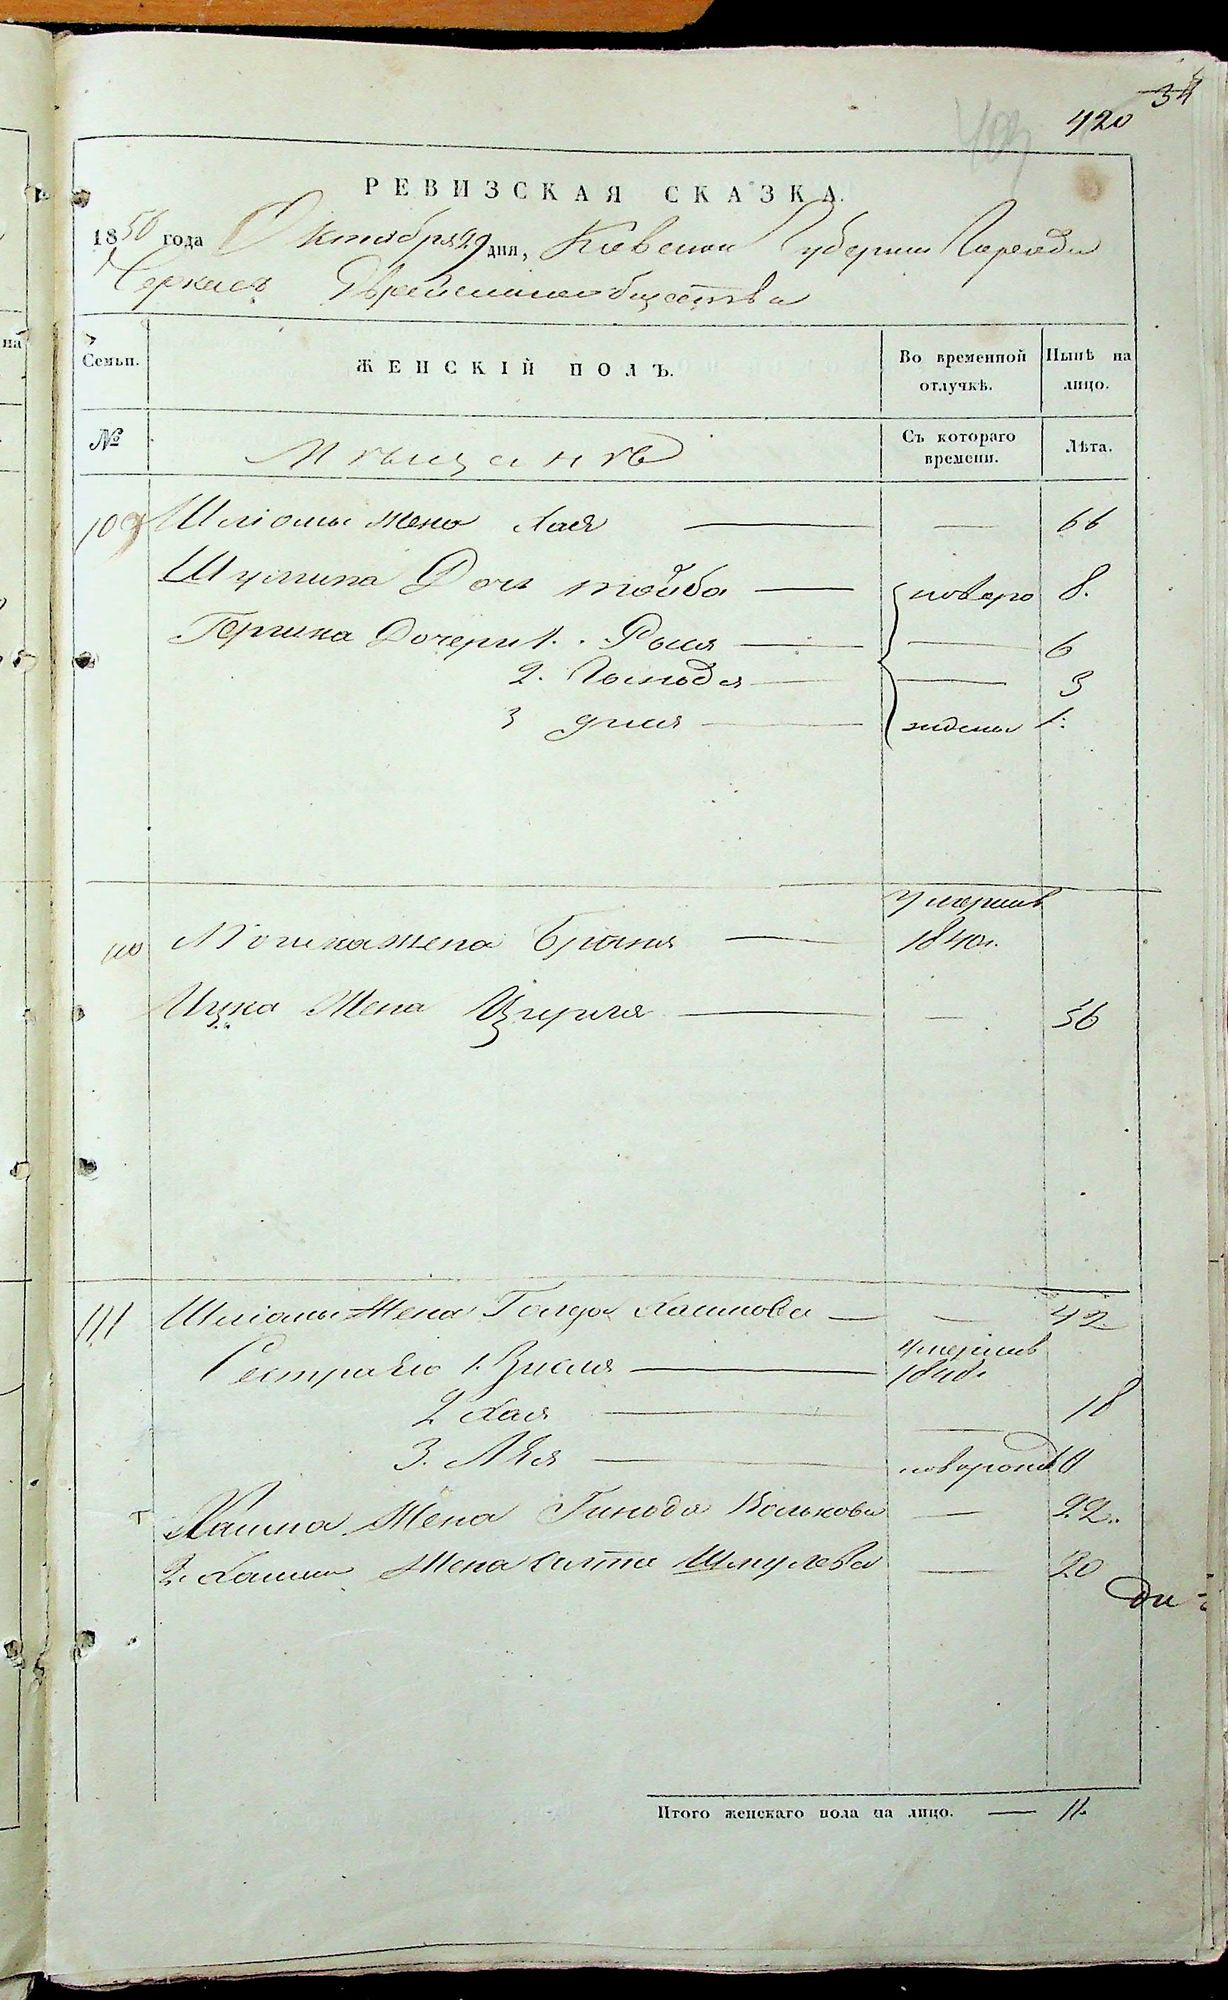 34
420
403
РЕВИЗСКАЯ СКАЗКА.
1850 года Октября 29 дня, Киевской Губернии Города
Черкасъ Еврейскаго общества
Семьи. ЖЕНСКІЙ ПОЛЪ. Во временной отлучкѣ. Нынѣ на лицо.
№ Мѣщанѣ Съ котораго времени. Лѣта.
109 Шліомы жена Хая — — 66
Шулима Дочь Тойба — новоро 8.
Гершка Дочери 1. Рыся — — 6
2. — — 3
3 — ждены 1.
умершъ
110 Мошка жена Браня — 1840г.
Ицка Жена Цируля — — 56
111 Шліомы Жена Голда Хаимова — — 42
умершъ
Сестра Его 1. Зисля — 184
2 Хая — — 18
3. Лея — новорожд
Хаима Жена Волькова — 22.
2. Хаима Жена Шмулева — 20
Итого женскаго пола на лицо. — 11.